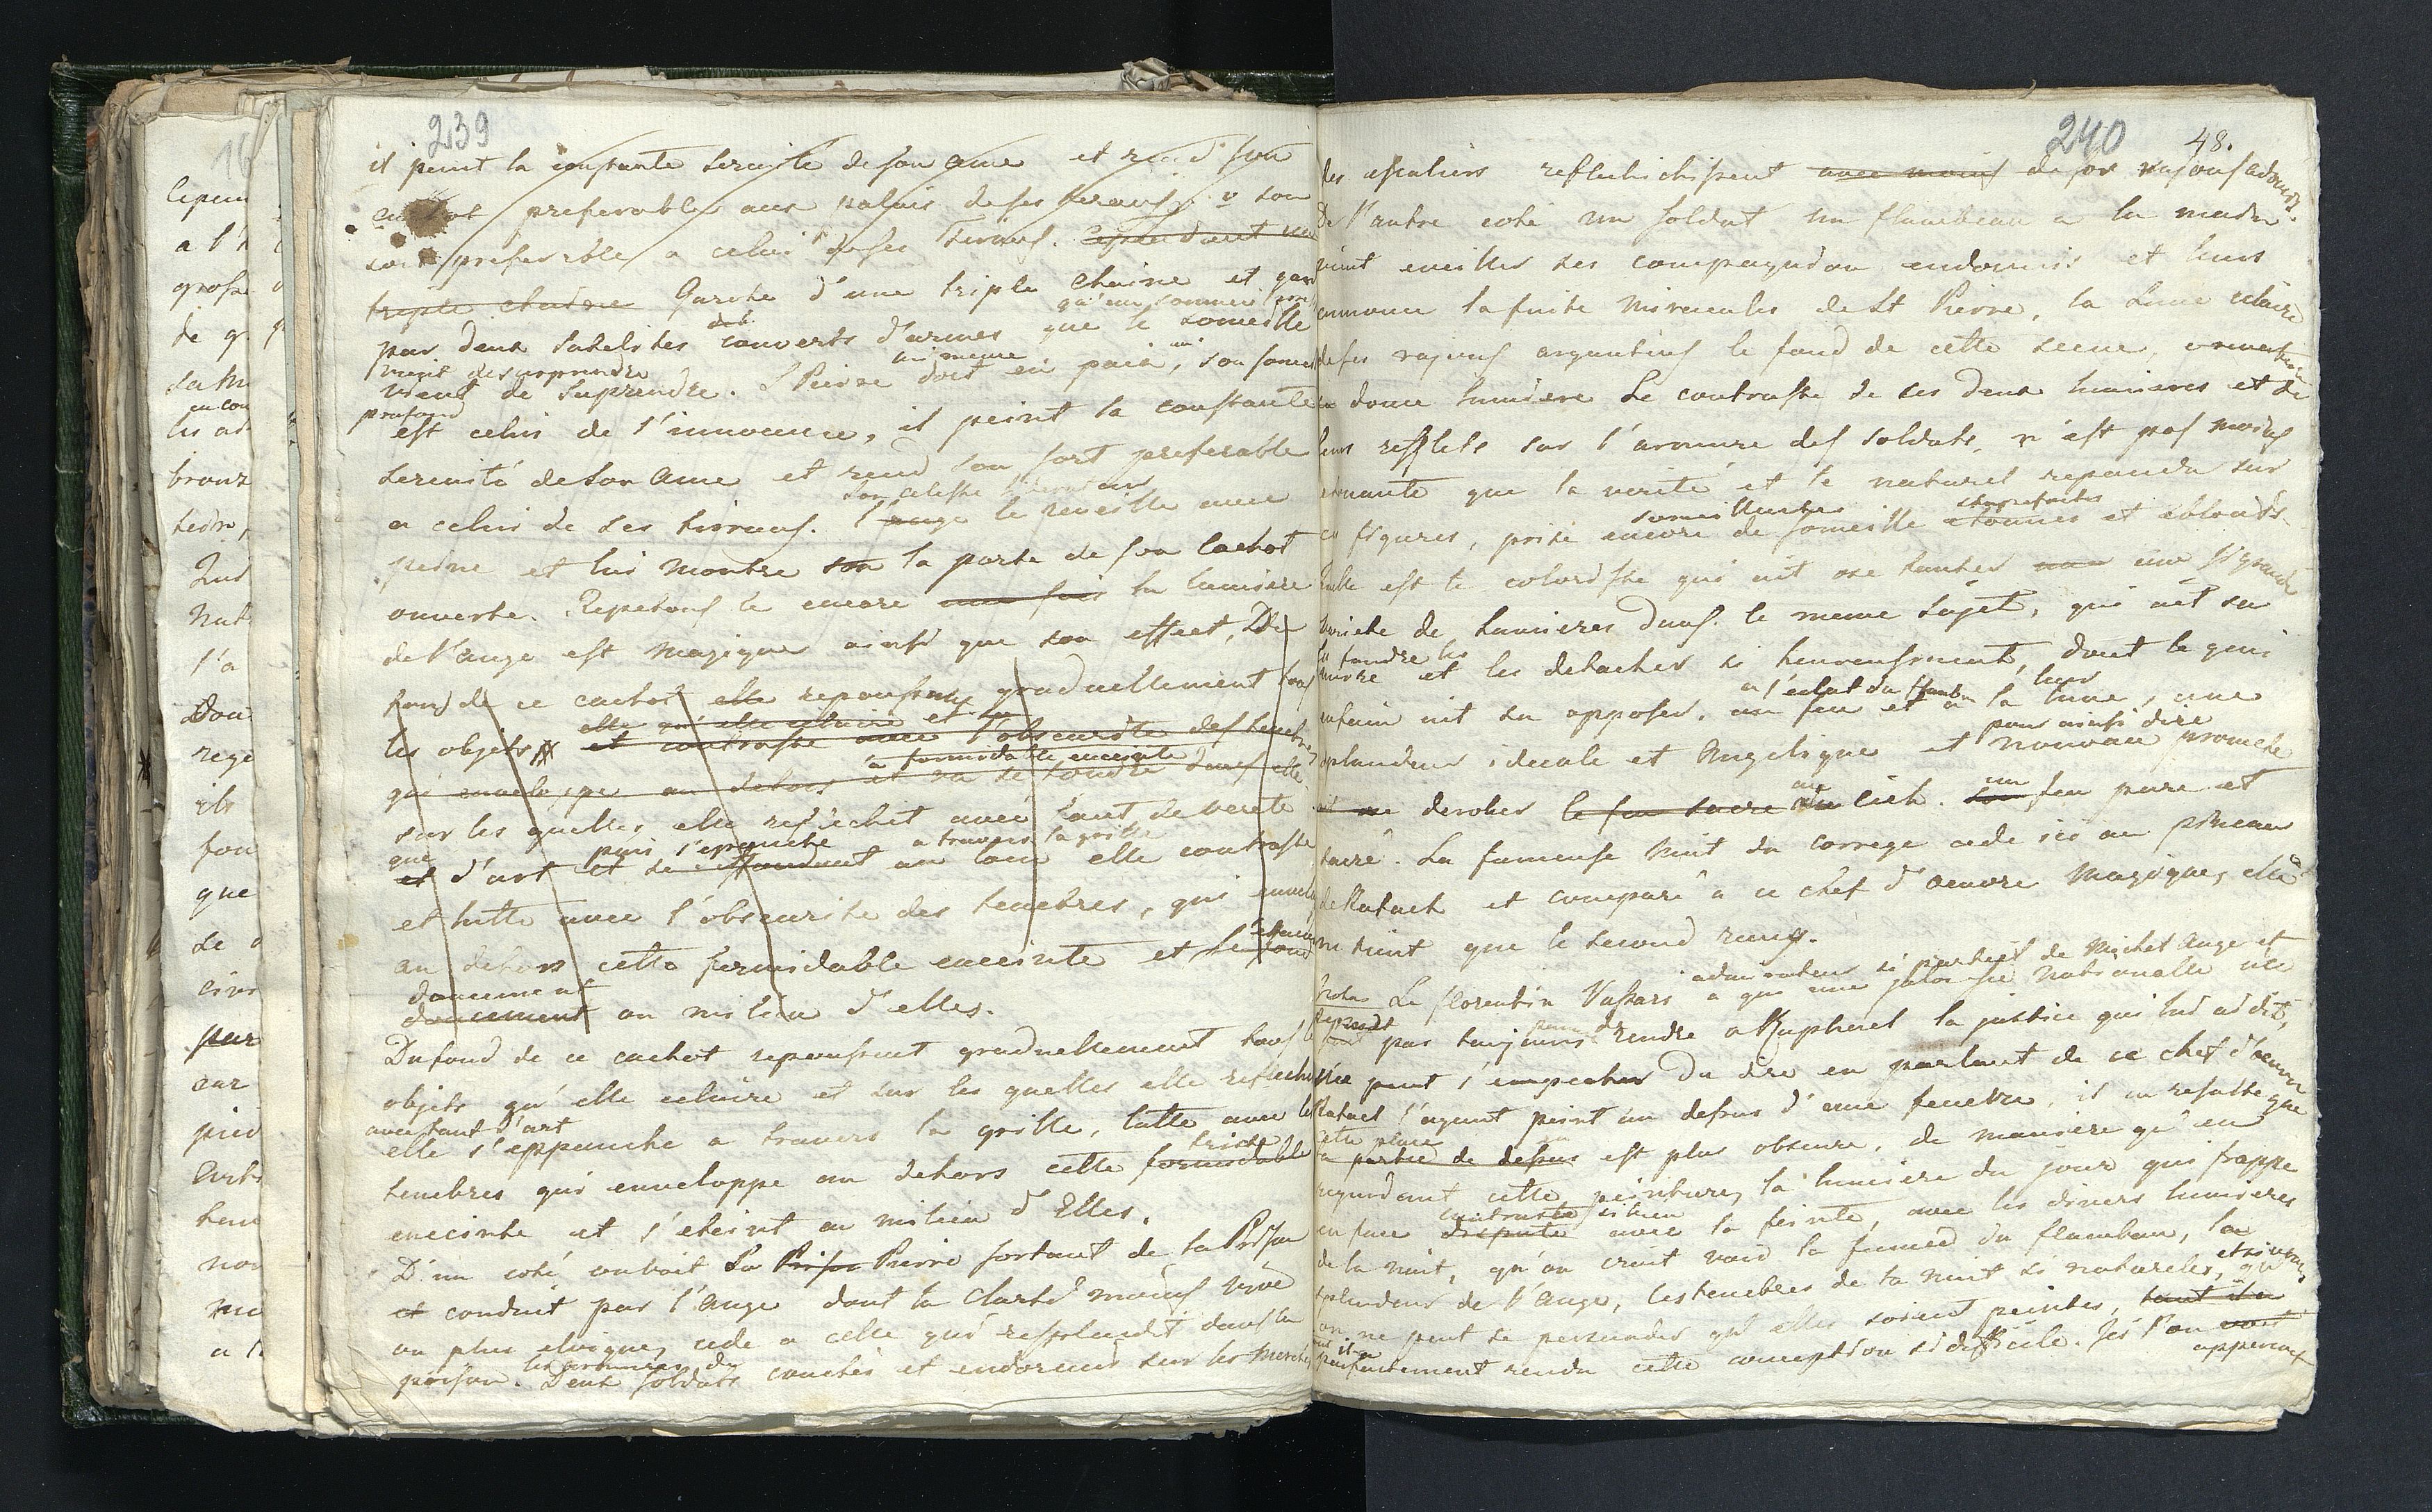 239
il peint la constante serenite de son ame et rend son
cachot preferable aux palais de ses tirans. v son
sort preferable a celui de ses Tirans. Cependant une
triple chaine Garoté d'une triple chaine et gardé
qu'un someil
par deux satelites couverts d'armes que le someille
vient de surprendre lui meme
vient de suprendre. St Pierre dort en paix, son someil
profond
est celui de l'innocence, il peint la constante
serenité de son ame et rend son sort preferable
son celeste liberateur
a celui de ses tirans. l'ange le reveille avec
peine et lui montre son la porte de son cachot
ouverte. Repetons le encore une fois la lumiere
de l'ange est magique ainsi que son effect, Du
fond de ce cachot elle repoussant graduellement tous
elle qu'elle eclaire et
les objets et contraste avec l'obscurite des tenebres
a formidable enceinte
qui enveloppe au dehors et va se fondre dans elle
sur les quelles elle reflechit avec tant de verité
que puis s'epanche a travers la grille
et d'art et se effondant au loin elle contraste
et lutte avec l'obscurite des tenebres, qui envelop
au dehors cette formidable enceinte et se fond
doucement
doucement au milieu d'elles.
Du fond de ce cachot repoussant graduellement tous les
objets qu'elle eclaire et sur les quelles elle reflechi
avec tant d'art
elle s'eppanche a travers la grille, lutte avec les
triste
tenebres qui enveloppe au dehors cette formidable
enceinte et s'eteint au milieu d'Elles.
D'un coté on voit St Prison Pierre sortant de la Prison
et conduit par l'Ange dont la clarté moins vive
au plus eloigne, cede a celle qui resplendit dans la
prison. Deux soldats couchés et endormis sur les marches
240 48.
des escaliers reflechichissent avec moins de ses rayons adoucis.
De l'autre coté un soldat un flambeau a la main
vient eveiller ses compagnon endormis et leurs
annonce la fuite miraculeu de St Pierre, la Lune eclaire
de ses rayons argentins le fond de cette scene,
sa douce lumiere Le contraste de ces deux lumieres et de
leurs refflets sur l'armure des soldats, n'est pas moins
etonnante que la verité et le naturel repandu sur
someillantes stupefaites
ces figures, prise encore de someille etonnes et eblouis.
Quelle est le coloriste qui ait ose tenter une une si grande
varieté de lumieres dans le meme sujet, qui ait su
les fondre les
et les detacher si heureusement, dont le genie
a l'eclat du flambeau leur
enfain ait su opposer, au feu et a la lune, une
pour ainsi dire
splandeur ideale et Angelique et nouveau promethe
ait ose derober le feu sacre au ciel. son un feu pure et
sacré. La fameuse Nuit du Correge cede ici au pinceau
de Rafael et comparé a ce chef d'oeuvre magique, elle
ne tient que le second rang.
admirateur si partial de Michel Ange et
Le florentin Vassari a que une jalousie nationalle ne
pas toujours rendre a Raphael la justice qui lui ai dû,
ne peut s'empecher du dire en parlant de ce chef d'oeuvre
Rafael l'ayant peint au dessus d'une fenetre, il en resulte que
cette place
la partie de dessus est plus obscure, de maniere qu'en
regardant cette peinture, la lumiere du jour qui frappe
contraste si bien
en face dispute avec la feinte, avec les divers lumieres
de la nuit, qu'on croit voir la fumée du flambeau, la
splendeur de l'Ange, les tenebres de la nuit si naturelles, et si vraies qu
on ne peut se persuader qu'elles soient peintes, tant il a
tant il a
parfaitement rendu cette conception si dificile. Ici l'on voit
apperçoit